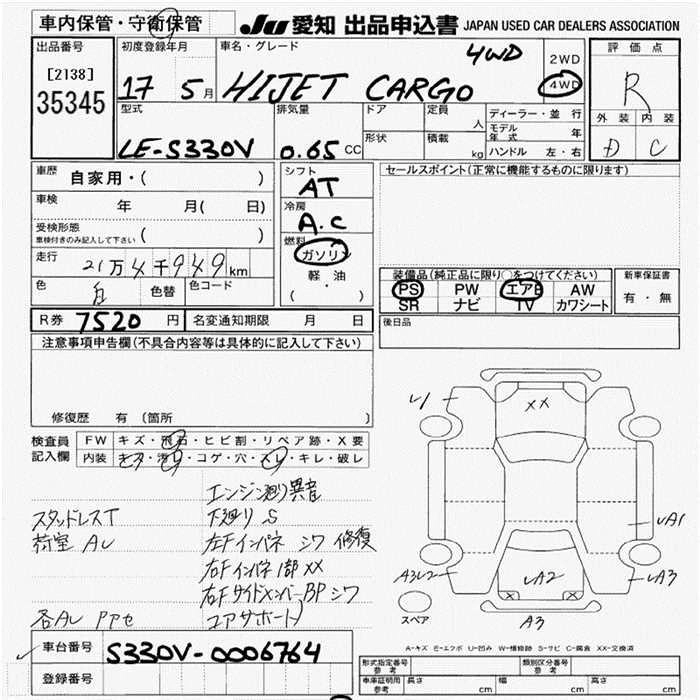 車内保管・守衛保管
JU 愛知 出品申込書 JAPAN USED CAR DEALERS ASSOCIATION
出品番号
[2138]
35345
初度登録年月
17 5月
車名・グレード
HIJET CARGO 4WD
2WD
4WD
評価点
R
外装 内装
D C
型式
LE-S330V
排気量
0.65 CC
ドア
定員
人
形状
積載
kg
ディーラー・並行
モデル年式 年
ハンドル 左・右
車歴
自家用・( )
車検
年 月( 日)
受検形態
車検付きのみ記入して下さい ( )
走行
21万4千949km
色
白
色替
色コード
シフト
AT
冷房
A.C
燃料
ガソリン
軽油
( ・ )
セールスポイント(正常に機能するものに限ります)
装備品(純正品に限り○をつけてください)
PS PW エアB AW
SR ナビ TV カワシート
新車保証書
有・無
後日品
R券 7520 円
名変通知期限 月 日
注意事項申告欄(不具合内容等は具体的に記入して下さい)
修復歴 有(箇所 )
検査員記入欄
FW キズ・飛石・ヒビ割・リペア跡・X要
内装 キズ・汚レ・コゲ・穴・スレ・キレ・破レ
エンジン廻り異音
スタッドレスT 下廻り S
荷室 AU 左Fインパネ シワ 修復
右Fインパネ 1部 XX
右FサイドメンバーBP シワ
各AU アセ コアサポート
車台番号 S330V-0006764
登録番号
XX
A3U2
A2
A1
A3
X X
A3
スペア
A-キズ E-エクボ U-凹み W-補修跡 S-サビ C-腐食 XX-交換済
形式指定番号 参考
類別区分番号 参考
車庫証明用 参考
長さ cm
幅 cm
高さ cm